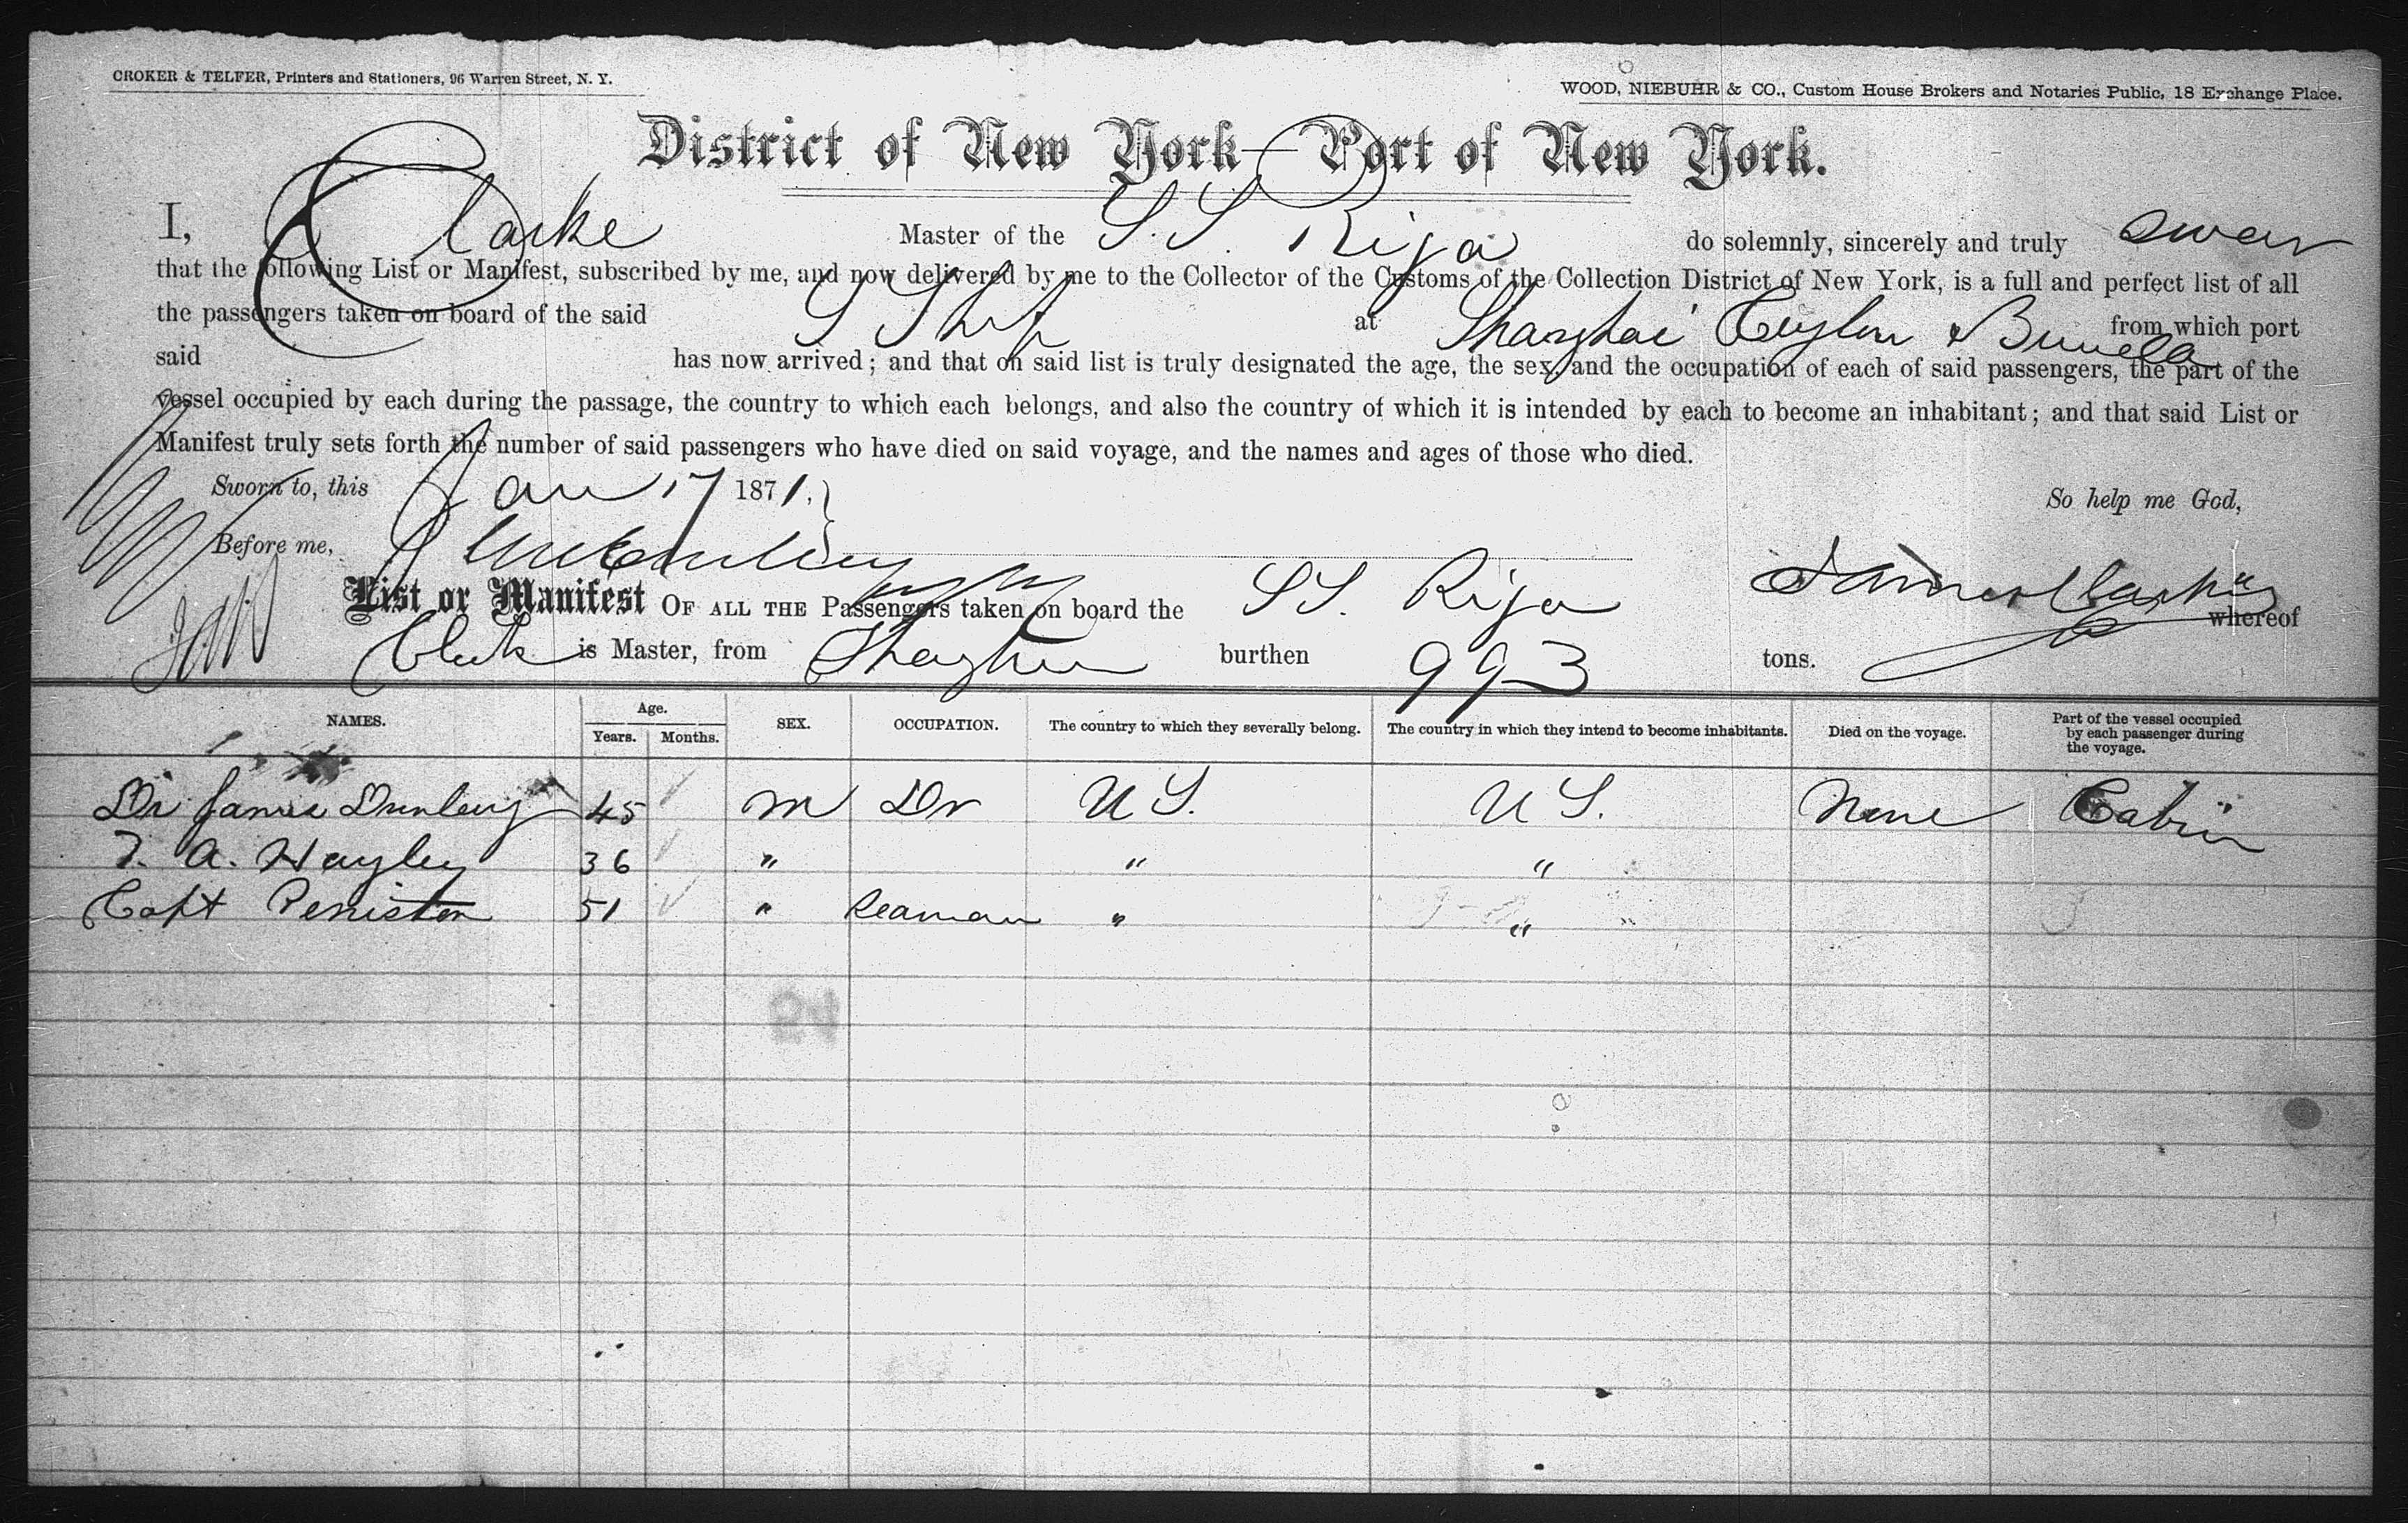 CROKER & TELFER, Printers and Stationers, 96 Warren Street, N. Y.
WOOD, NIEBUHR & CO., Custom House Brokers and Notaries Public, 18 Exchange Place.
District of New York—Port of New York.
I, Clarke Master of the S.S. Riga do solemnly, sincerely and truly swear
that the following List or Manifest, subscribed by me, and now delivered by me to the Collector of the Customs of the Collection District of New York, is a full and perfect list of all
the passengers taken on board of the said S Ship at Shanghai Ceylon & from which port
said has now arrived; and that on said list is truly designated the age, the sex, and the occupation of each of said passengers, the part of the
vessel occupied by each during the passage, the country to which each belongs, and also the country of which it is intended by each to become an inhabitant; and that said List or
Manifest truly sets forth the number of said passengers who have died on said voyage, and the names and ages of those who died.
Sworn to, this Jan 17 1871. So help me God,
Before me, James Clarke
List or Manifest OF ALL THE Passengers taken on board the SS. Riga whereof
is Master, from burthen 993 tons.
NAMES. Age. Years. Months. SEX. OCCUPATION. The country to which they severally belong. The country in which they intend to become inhabitants. Died on the voyage. Part of the vessel occupied by each passenger during the voyage.
Dr James Dunlevy 45 M Dr U S. U S. None Cabin
T. A. Hayley 36 " " "
Capt Peniston 51 " Seaman " "